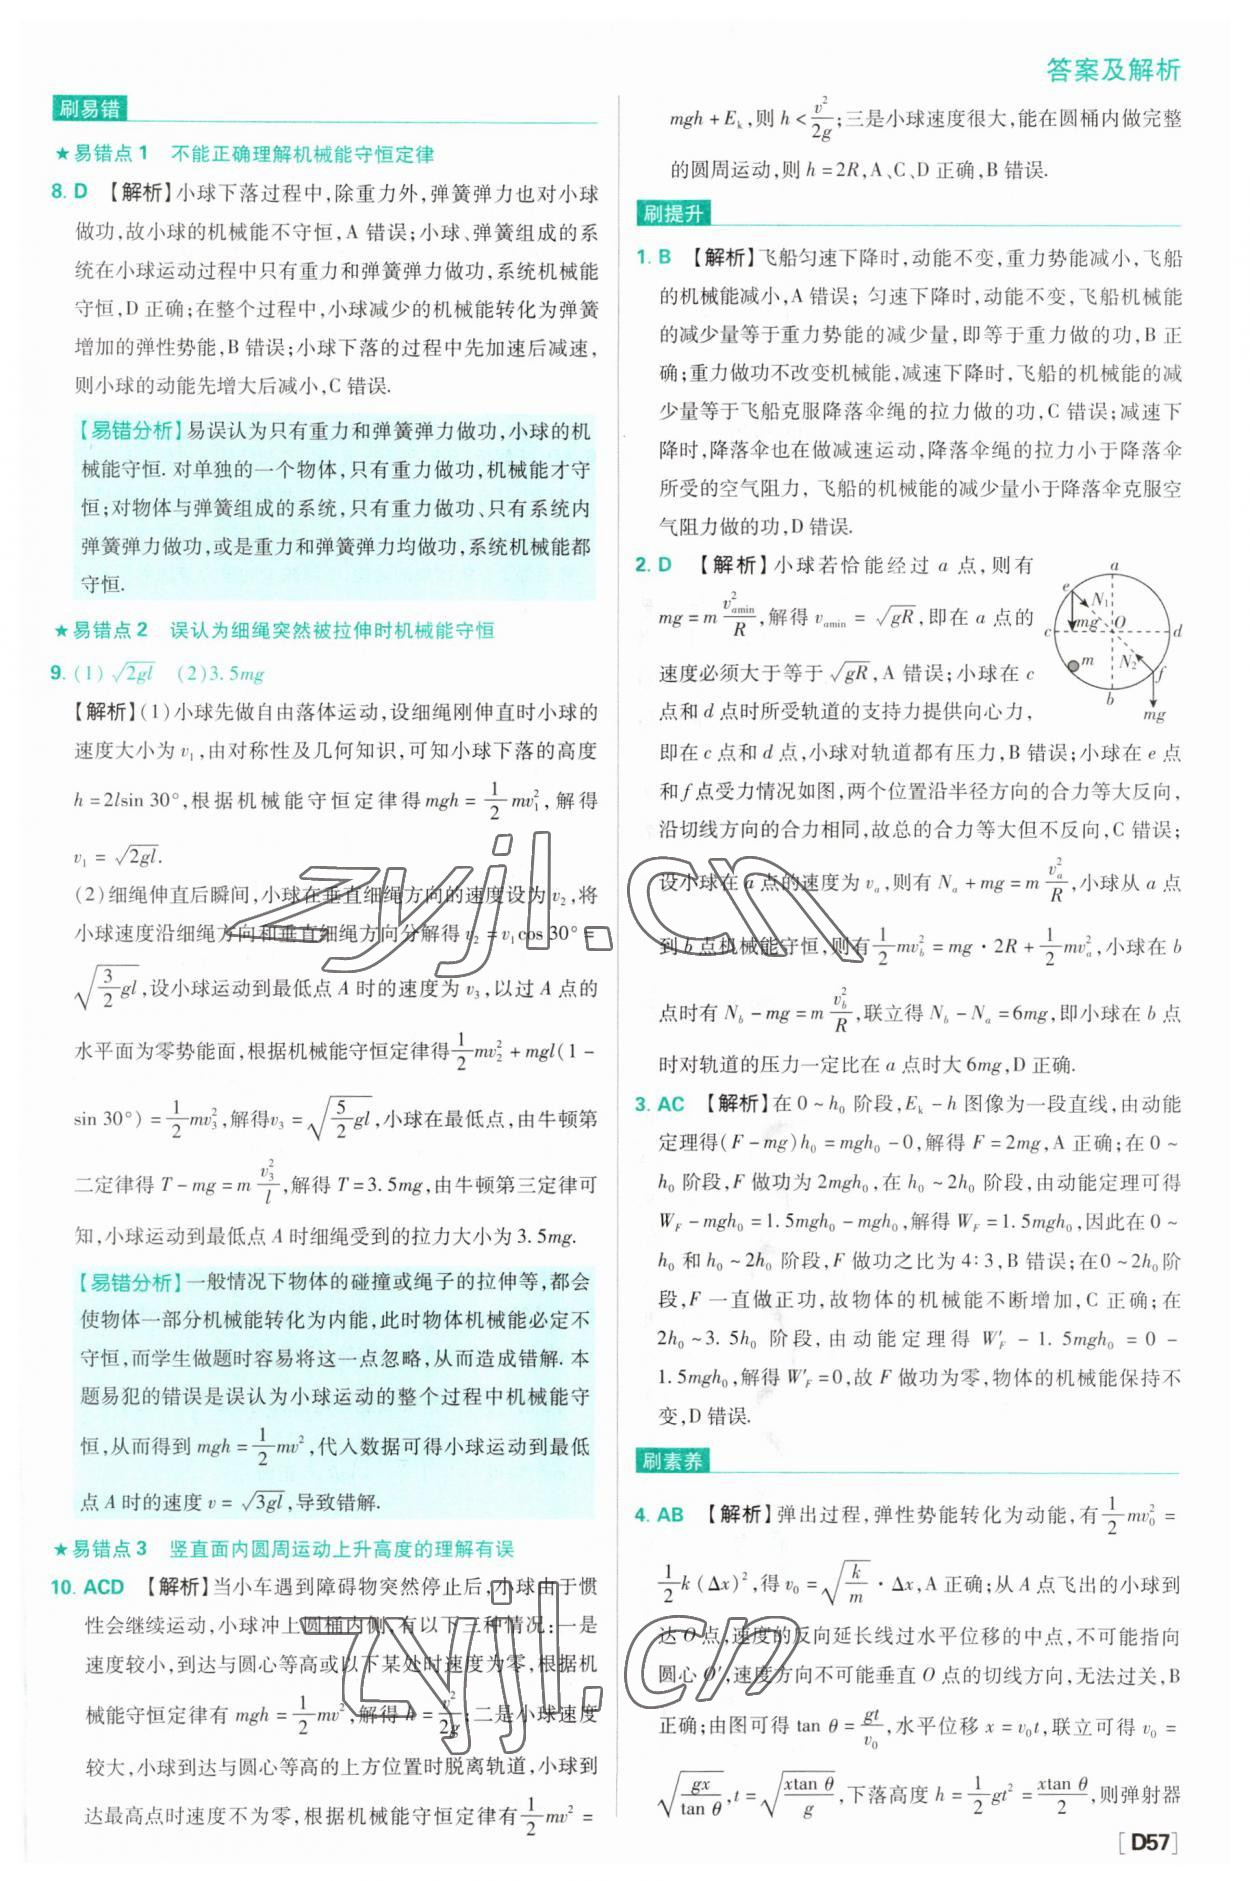 答案及解析
刷易错
★易错点1 不能正确理解机械能守恒定律
8. D 【解析】小球下落过程中,除重力外,弹簧弹力也对小球
做功,故小球的机械能不守恒,A 错误;小球、弹簧组成的系
统在小球运动过程中只有重力和弹簧弹力做功,系统机械能
守恒,D 正确;在整个过程中,小球减少的机械能转化为弹簧
增加的弹性势能,B 错误;小球下落的过程中先加速后减速,
则小球的动能先增大后减小,C 错误.
【易错分析】易误认为只有重力和弹簧弹力做功,小球的机
械能守恒. 对单独的一个物体,只有重力做功,机械能才守
恒;对物体与弹簧组成的系统,只有重力做功、只有系统内
弹簧弹力做功,或是重力和弹簧弹力均做功,系统机械能都
守恒.
★易错点2 误认为细绳突然被拉伸时机械能守恒
9. (1) √(2gl) (2)3.5mg
【解析】(1)小球先做自由落体运动,设细绳刚伸直时小球的
速度大小为 v₁,由对称性及几何知识,可知小球下落的高度
h=2lsin 30°,根据机械能守恒定律得 mgh = 1/2 mv₁²,解得
v₁ = √(2gl).
(2)细绳伸直后瞬间,小球在垂直细绳方向的速度设为 v₂,将
小球速度沿细绳方向和垂直细绳方向分解得 v₂ = v₁cos 30° =
√(3/2 gl),设小球运动到最低点 A 时的速度为 v₃,以过 A 点的
水平面为零势能面,根据机械能守恒定律得 1/2 mv₂² + mgl(1 −
sin 30°) = 1/2 mv₃²,解得v₃ = √(5/2 gl),小球在最低点,由牛顿第
二定律得 T − mg = m v₃²/l,解得 T = 3.5mg,由牛顿第三定律可
知,小球运动到最低点 A 时细绳受到的拉力大小为 3.5mg.
【易错分析】一般情况下物体的碰撞或绳子的拉伸等,都会
使物体一部分机械能转化为内能,此时物体机械能必定不
守恒,而学生做题时容易将这一点忽略,从而造成错解. 本
题易犯的错误是误认为小球运动的整个过程中机械能守
恒,从而得到 mgh = 1/2 mv²,代入数据可得小球运动到最低
点 A 时的速度 v = √(3gl),导致错解.
★易错点3 竖直面内圆周运动上升高度的理解有误
10. ACD 【解析】当小车遇到障碍物突然停止后,小球由于惯
性会继续运动,小球冲上圆桶内侧,有以下三种情况:一是
速度较小,到达与圆心等高或以下某处时速度为零,根据机
械能守恒定律有 mgh = 1/2 mv²,解得 h = v²/2g;二是小球速度
较大,小球到达与圆心等高的上方位置时脱离轨道,小球到
达最高点时速度不为零,根据机械能守恒定律有 1/2 mv² =
mgh + Eₖ,则 h < v²/2g;三是小球速度很大,能在圆桶内做完整
的圆周运动,则 h = 2R,A、C、D 正确,B 错误.
刷提升
1. B 【解析】飞船匀速下降时,动能不变,重力势能减小,飞船
的机械能减小,A 错误; 匀速下降时,动能不变,飞船机械能
的减少量等于重力势能的减少量,即等于重力做的功,B 正
确;重力做功不改变机械能,减速下降时,飞船的机械能的减
少量等于飞船克服降落伞绳的拉力做的功,C 错误;减速下
降时,降落伞也在做减速运动,降落伞绳的拉力小于降落伞
所受的空气阻力, 飞船的机械能的减少量小于降落伞克服空
气阻力做的功,D 错误.
2. D 【解析】小球若恰能经过 a 点,则有
mg = m v²ₐₘᵢₙ/R,解得 vₐₘᵢₙ = √(gR),即在 a 点的
速度必须大于等于 √(gR),A 错误;小球在 c
点和 d 点时所受轨道的支持力提供向心力,
a
e
N₁
mg
O
c
d
m
N₂
f
b
mg
即在 c 点和 d 点,小球对轨道都有压力,B 错误;小球在 e 点
和 f 点受力情况如图,两个位置沿半径方向的合力等大反向,
沿切线方向的合力相同,故总的合力等大但不反向,C 错误;
设小球在 a 点的速度为 vₐ,则有 Nₐ + mg = m vₐ²/R,小球从 a 点
到 b 点机械能守恒,则有 1/2 mv_b² = mg · 2R + 1/2 mvₐ²,小球在 b
点时有 N_b − mg = m v_b²/R,联立得 N_b − Nₐ = 6mg,即小球在 b 点
时对轨道的压力一定比在 a 点时大 6mg,D 正确.
3. AC 【解析】在 0 ~ h₀ 阶段,Eₖ − h 图像为一段直线,由动能
定理得(F − mg)h₀ = mgh₀ − 0,解得 F = 2mg,A 正确;在 0 ~
h₀ 阶段,F 做功为 2mgh₀,在 h₀ ~ 2h₀ 阶段,由动能定理可得
W_F − mgh₀ = 1.5mgh₀ − mgh₀,解得 W_F = 1.5mgh₀,因此在 0 ~
h₀ 和 h₀ ~ 2h₀ 阶段,F 做功之比为 4∶3,B 错误;在0 ~ 2h₀阶
段,F 一直做正功,故物体的机械能不断增加,C 正确;在
2h₀ ~ 3.5h₀ 阶段,由动能定理得 W′_F − 1.5mgh₀ = 0 −
1.5mgh₀,解得 W′_F = 0,故 F 做功为零,物体的机械能保持不
变,D 错误.
刷素养
4. AB 【解析】弹出过程,弹性势能转化为动能,有 1/2 mv₀² =
1/2 k(Δx)²,得 v₀ = √(k/m) · Δx,A 正确;从 A 点飞出的小球到
达 O 点,速度的反向延长线过水平位移的中点,不可能指向
圆心 O′,速度方向不可能垂直 O 点的切线方向,无法过关,B
正确;由图可得 tan θ = gt/v₀,水平位移 x = v₀t,联立可得 v₀ =
√(gx/tan θ),t = √(xtan θ/g),下落高度 h = 1/2 gt² = xtan θ/2,则弹射器
[D57]
zyjl.cn
zyjl.cn